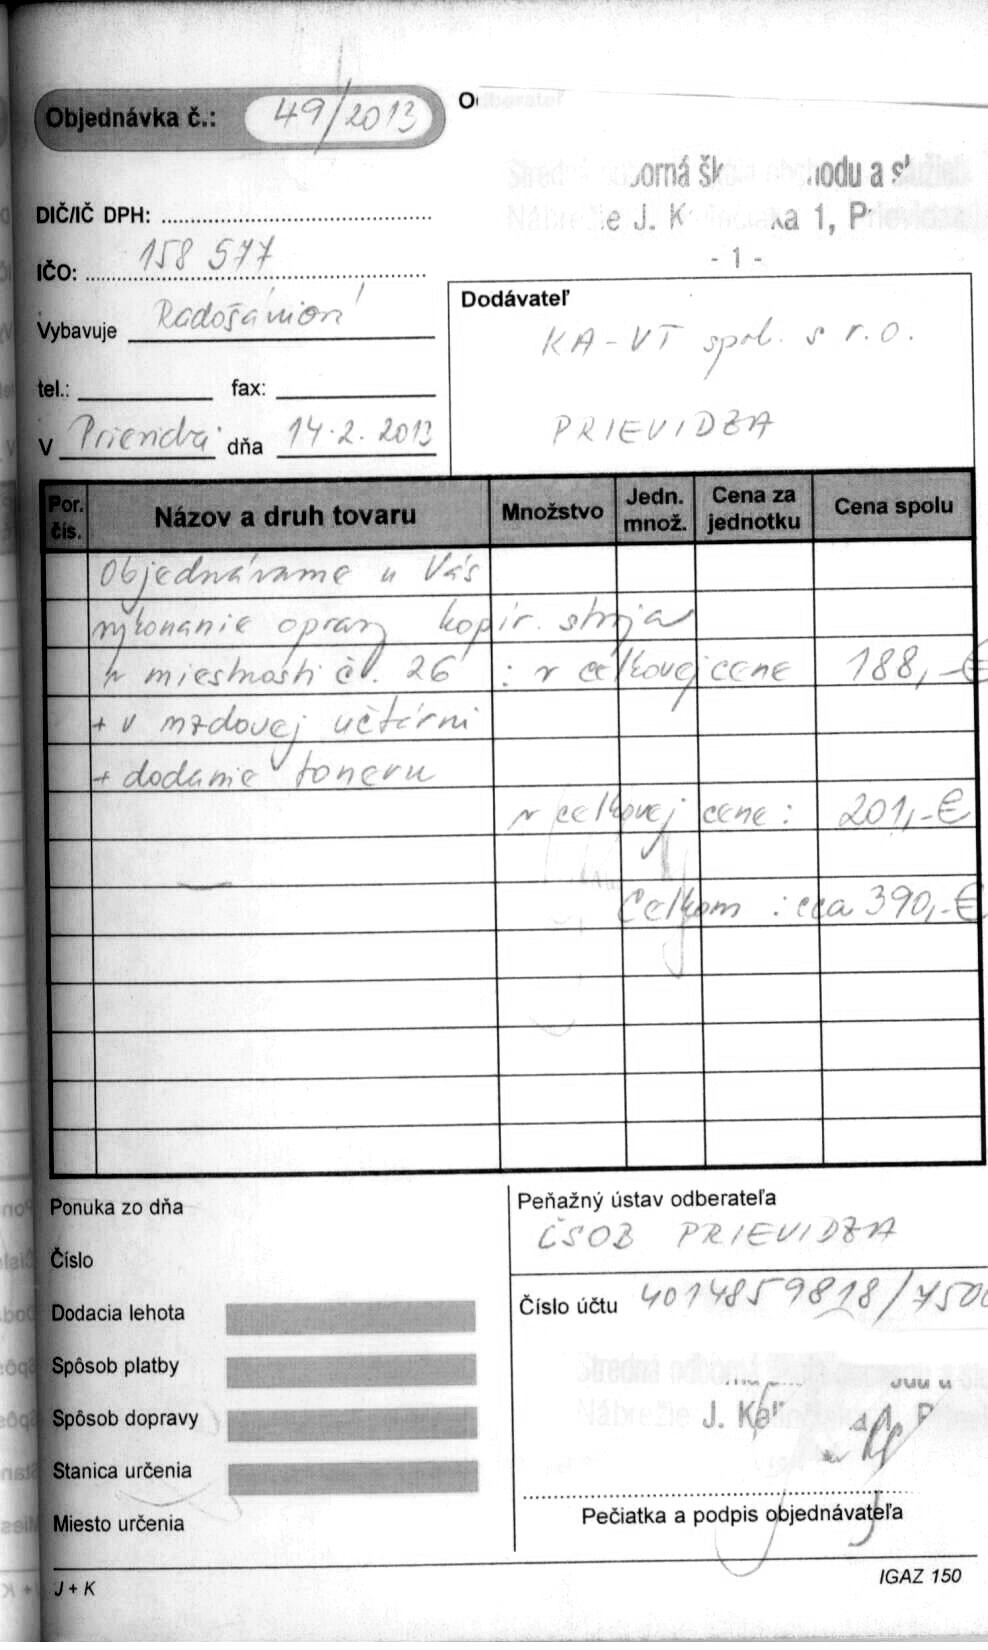 Objednávka č.: 49/2013
DIČ/IČ DPH:
IČO: 158 577
Vybavuje
tel.: fax:
V Prievidzi dňa 14.2.2013
- 1 -
Dodávateľ
KA-VT spol. s r.o.
PRIEVIDZA
Por. čís. Názov a druh tovaru Množstvo Jedn. množ. Cena za jednotku Cena spolu
Objednávame u Vás
vykonanie opravy kopír. stroja
v miestnosti č. 26 : v celkovej cene 188,-€
+ v mzdovej učtárni
+ dodanie toneru
v celkovej cene: 201,-€
Celkom : cca 390,-€
Ponuka zo dňa
Číslo
Dodacia lehota
Spôsob platby
Spôsob dopravy
Stanica určenia
Miesto určenia
Peňažný ústav odberateľa
ČSOB PRIEVIDZA
Číslo účtu 4014859818/7500
Pečiatka a podpis objednávateľa
J + K
IGAZ 150